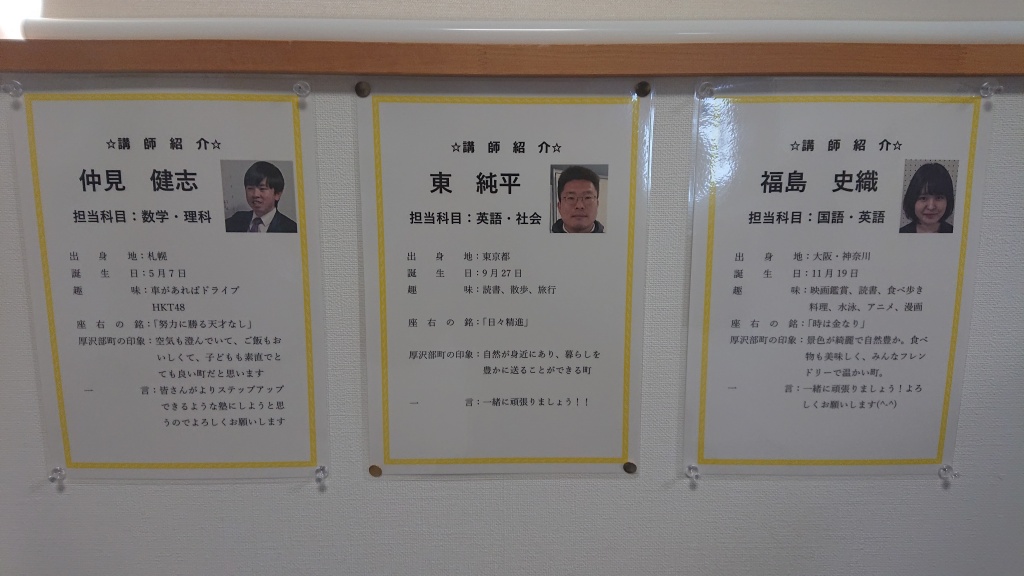 ☆講 師 紹 介☆
仲見 健志
担当科目：数学・理科
出身地：札幌
誕生日：5月7日
趣味：車があればドライブ
HKT48
座右の銘：「努力に勝る天才なし」
厚沢部町の印象：空気も澄んでいて、ご飯もお
いしくて、子どもも素直でと
ても良い町だと思います
一言：皆さんがよりステップアップ
できるような塾にしようと思
うのでよろしくお願いします
☆講 師 紹 介☆
東 純平
担当科目：英語・社会
出身地：東京都
誕生日：9月27日
趣味：読書、散歩、旅行
座右の銘：「日々精進」
厚沢部町の印象：自然が身近にあり、暮らしを
豊かに送ることができる町
一言：一緒に頑張りましょう！！
☆講 師 紹 介☆
福島 史織
担当科目：国語・英語
出身地：大阪・神奈川
誕生日：11月19日
趣味：映画鑑賞、読書、食べ歩き
料理、水泳、アニメ、漫画
座右の銘：「時は金なり」
厚沢部町の印象：景色が綺麗で自然豊か。食べ
物も美味しく、みんなフレン
ドリーで温かい町。
一言：一緒に頑張りましょう！よろ
しくお願いします(^-^)